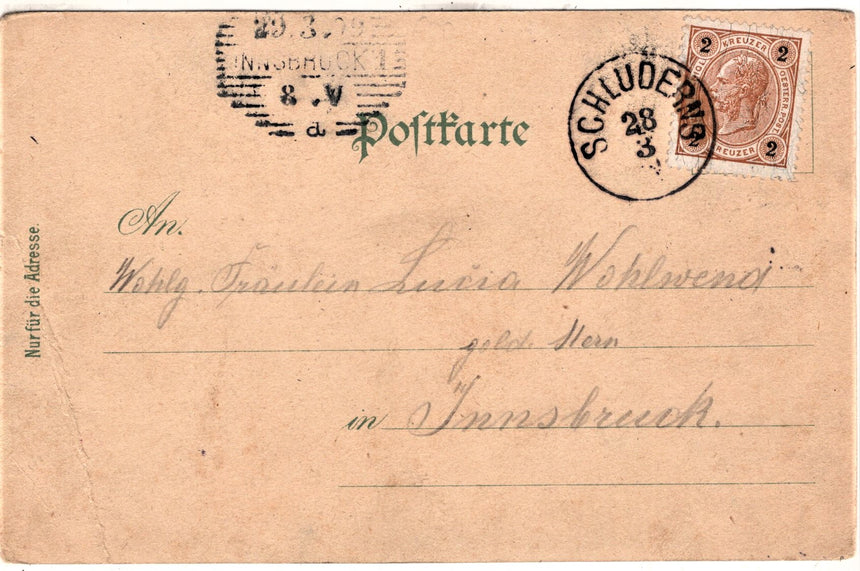 INNSBRUCK 1
8 .V
a
Postkarte
SCHLUDERNS
28
3
2 KREUZER 2
2 KREUZER 2
An.
Wohlg. Fräulein Lucia Wohlwend
gold. Stern
in Innsbruck.
Nur für die Adresse.